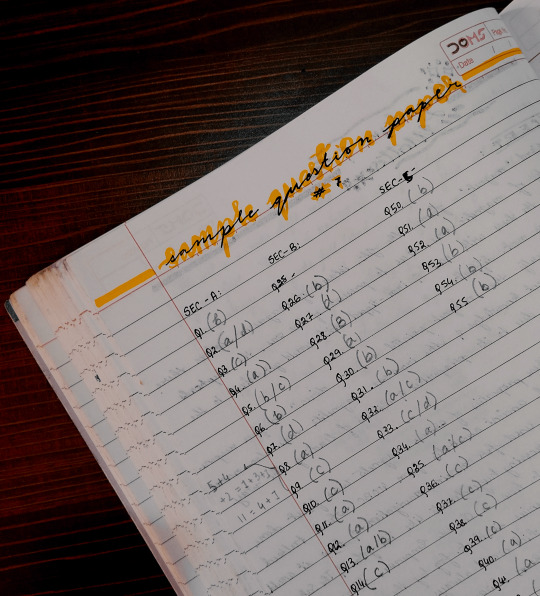 DOMS
Page No
Date
sample question paper
# 7
SEC-A:
Q1. (B)
Q2 (a/d)
Q3 (c)
Q4. (a)
Q5. (b/c)
Q6 (b)
Q7 (d)
Q8 (a)
Q9 (c)
Q10. (c)
Q11. (a)
Q12. (a)
Q13. (a/b)
Q14 (c)
SEC-B:
Q25 -
Q26. (b)
Q27 (d)
Q28. (B)
Q29. (a)
Q30 (b)
Q31. (b)
Q32. (a/c)
Q33. (c/d)
Q34. (a)
Q35 (a/c)
Q36. (c)
Q37. (c)
Q38 (c)
Q39. (c)
Q40. (a)
Q41. (a
SEC-
Q50. (b)
Q51. (a)
Q52. (a)
Q53. (b)
Q54. (b)
Q55. (b)
5+4
+2=1+3+
11=4+1